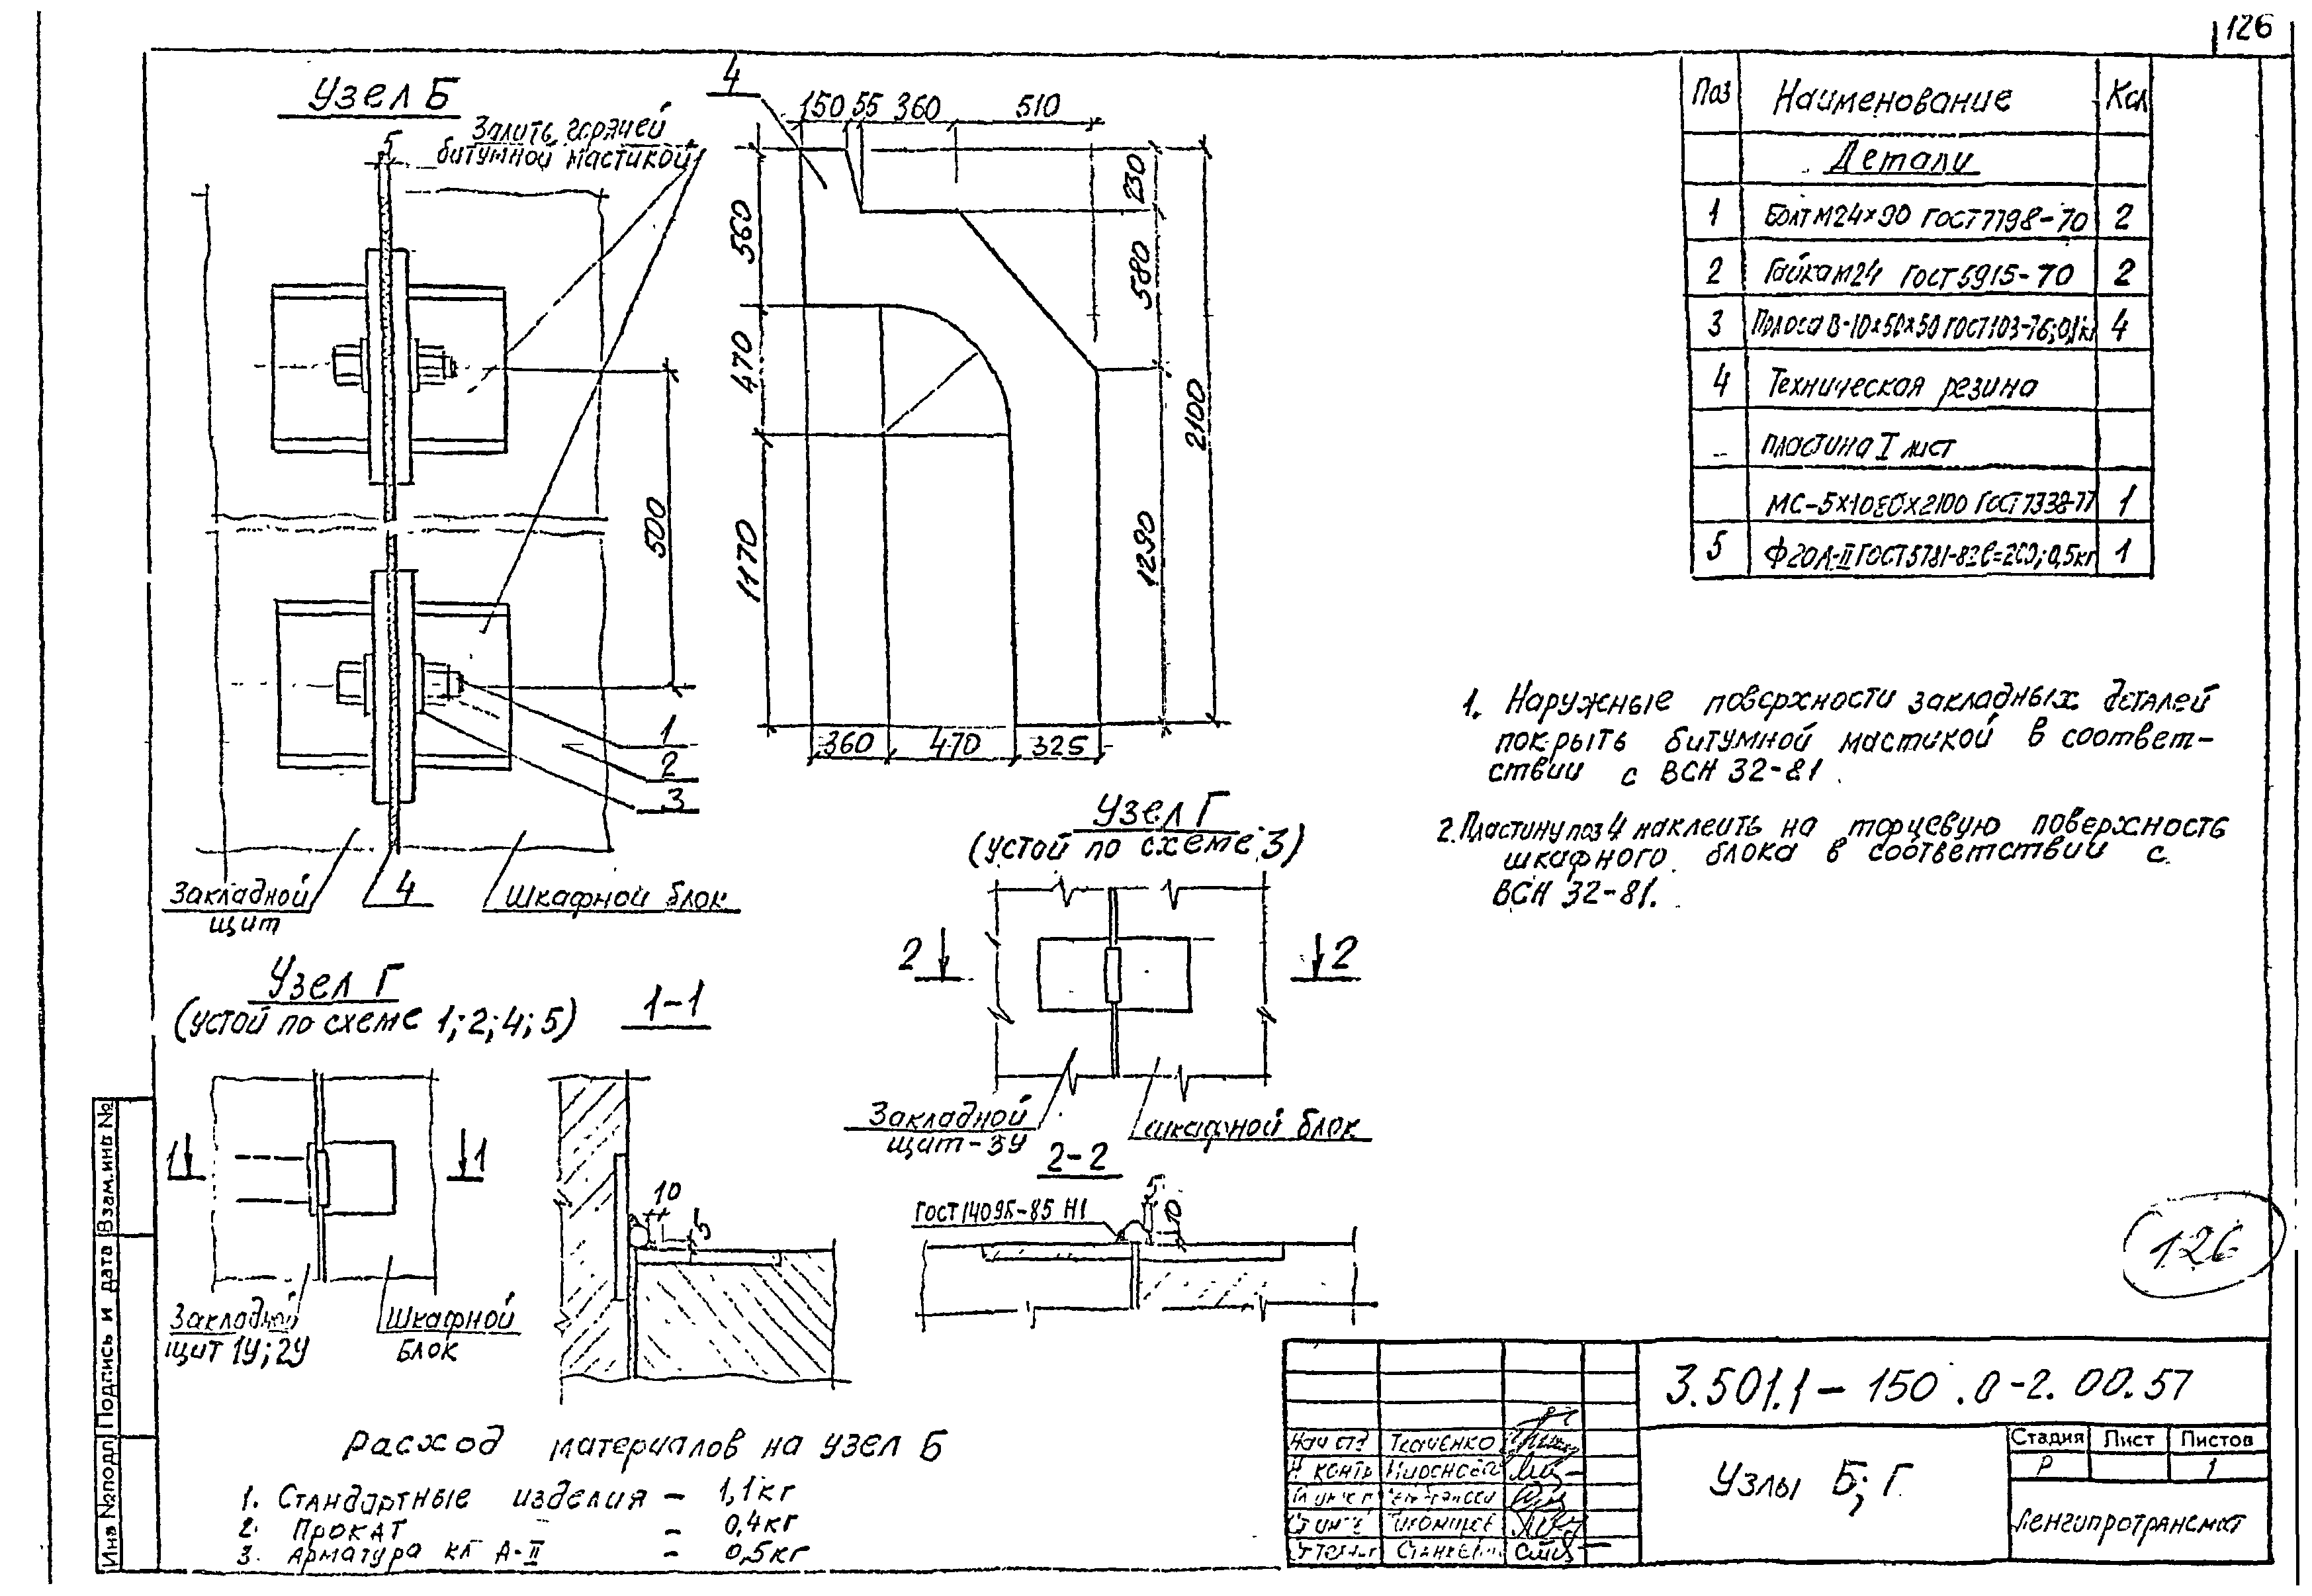 126
Узел Б
Залить горячей
битумной мастикой
5
500
1
2
3
Закладной
щит
4
Шкафной блок
4
150 55 360 510
560
470
1170
230
580
1290
2100
360 470 325
Поз Наименование Кол
Детали
1 Болт М24×90 ГОСТ 7798-70 2
2 Гайка М24 ГОСТ 5915-70 2
3 Полоса В-10×50×50 ГОСТ 103-76; 0,1кг 4
4 Техническая резина
пластина I лист
МС-5×1080×2100 ГОСТ 7338-77 1
5 Ф20А-II ГОСТ 5781-82 ℓ=200; 0,5кг 1
1. Наружные поверхности закладных деталей
покрыть битумной мастикой в соответ-
ствии с ВСН 32-81.
2. Пластину поз 4 наклеить на торцевую поверхность
шкафного блока в соответствии с
ВСН 32-81.
Узел Г
(устой по схеме 3)
2 2
Закладной
щит-3У
шкафной блок
2-2
ГОСТ 14098-85 Н1
5
10
Узел Г
(устой по схеме 1; 2; 4; 5)
1 1
Закладной
щит 1У; 2У
Шкафной
блок
1-1
10
5
Расход материалов на узел Б
1. Стандартные изделия - 1,1кг
2. Прокат - 0,4кг
3. Арматура кл А-II - 0,5кг
126
3.501.1-150.0-2.00.57
Узлы Б; Г.
Стадия Лист Листов
Р 1
Ленгипротрансмост
Нач отд Ткаченко
Н контр
Инв № подл Подпись и дата Взам. инв №